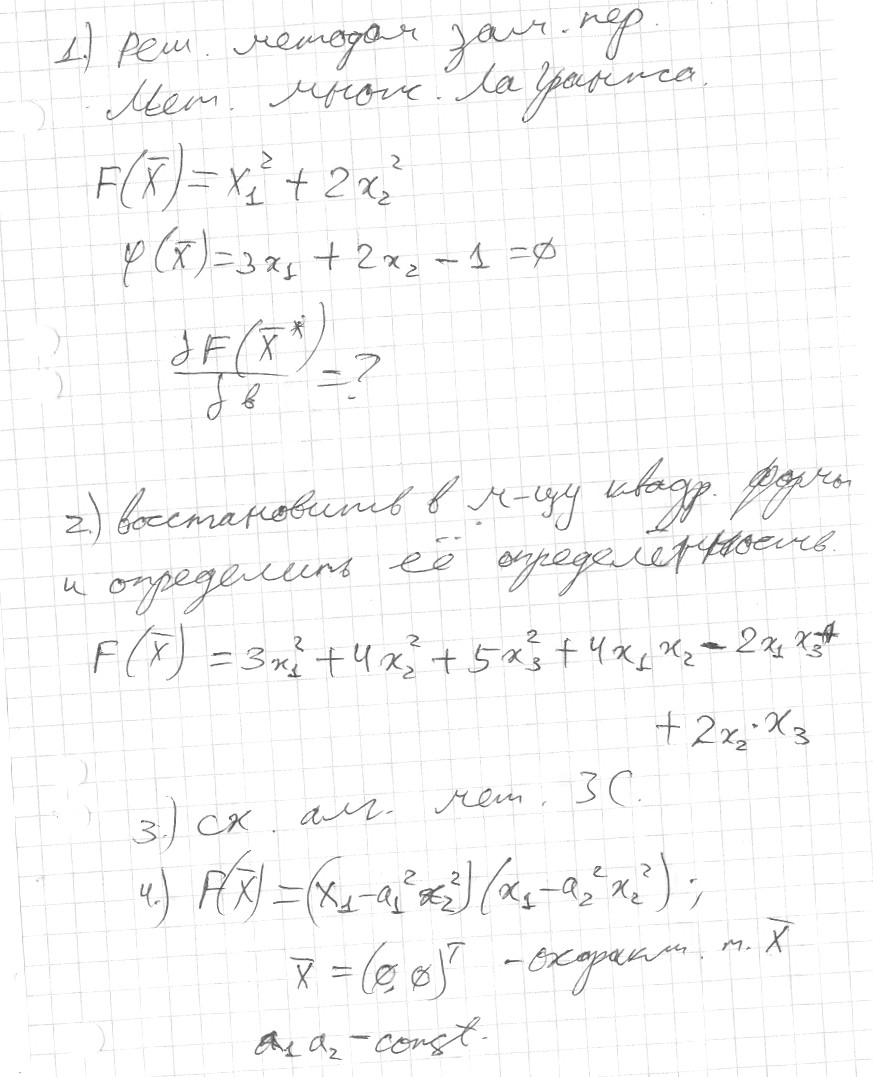 1.) Реш. методом зам. пер.
Мет. множ. Лагранжа.
F(X̄) = x₁² + 2x₂²
φ(x̄) = 3x₁ + 2x₂ - 1 = 0
∂F(X̄*)/∂в = ?
2.) восстановить в м-цу квадр. формы
и определить её определённость.
F(X̄) = 3x₁² + 4x₂² + 5x₃² + 4x₁x₂ - 2x₁x₃ +
+ 2x₂·x₃
3.) сх. алг. мет. ЗС.
4.) F(X̄) = (x₁ - a₁²x₂²)(x₁ - a₂²x₂²);
X̄ = (0, 0)ᵀ - охаракт. т. X̄
a₁ a₂ - const.